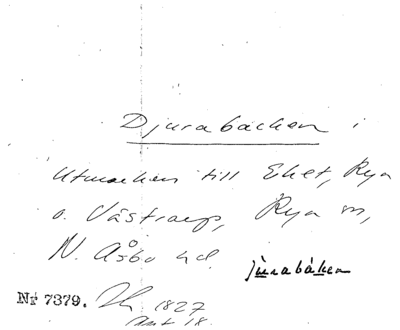 Djurabäcken i
utmarken till Eket, Rya
o. Västraup, Rya sn,
N. Åsbo hd. jùrabàken
Nr 7379. 1827